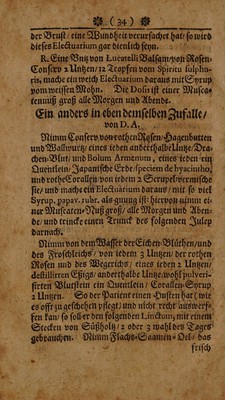 (34)
der Brust, eine Wundheit verursachet hat, so wird
dieses Electuarium gar dienlich seyn.
R. Eine Untz von Lucatelli Balsam, von Rosen-
Conserv 2 Untzen, 12 Tropfen vom Spiritu sulph-
ris, mache ein weich Electuarium daraus mit Syrup
vom weissen Mohn. Die Dosis ist einer Musca-
tennuß groß alle Morgen und Abende.
Ein anders in eben demselben Zufalle,
von D. A.
Nimm Conserv. von rothen Rosen, Hagenbutten
und Wallwurtz, eines ieden anderthalbe Untze, Dra-
chen-Blut, und Bolum Armenum, eines ieden ein
Quentlein, Japanische Erde, speciem de hyacintho,
und rothe Corallen von iedem 2 Scrupel, vermische
sie, und mache ein Electuarium daraus, mit so viel
Syrup. papav. rubr. als gnung ist: hiervon nimm ei-
ner Muscaten-Nuß groß, alle Morgen und Aben-
de, und trincke einen Trunck des folgenden Julep
darnach.
Nimm von dem Wasser der Eichen-Blüthen, und
des Froschleichs, von iedem 3 Untzen, der rothen
Rosen und des Wegerichs, eines ieden 2 Untzen,
destillirten Eßigs, anderthalbe Untze, wohl pulveri-
sirten Blutstein ein Quentlein, Corallen-Syrup
2 Untzen. So der Patient einen Husten hat, wie
es offt zu geschehen pflegt, und nicht recht auswerf-
fen kan, so soll er den folgenden Linctum, mit einem
Stecken von Süßholtz, 2 oder 3 mahl des Tages
gebrauchen. Nimm Flachs-Saamen-Oel, das
frisch